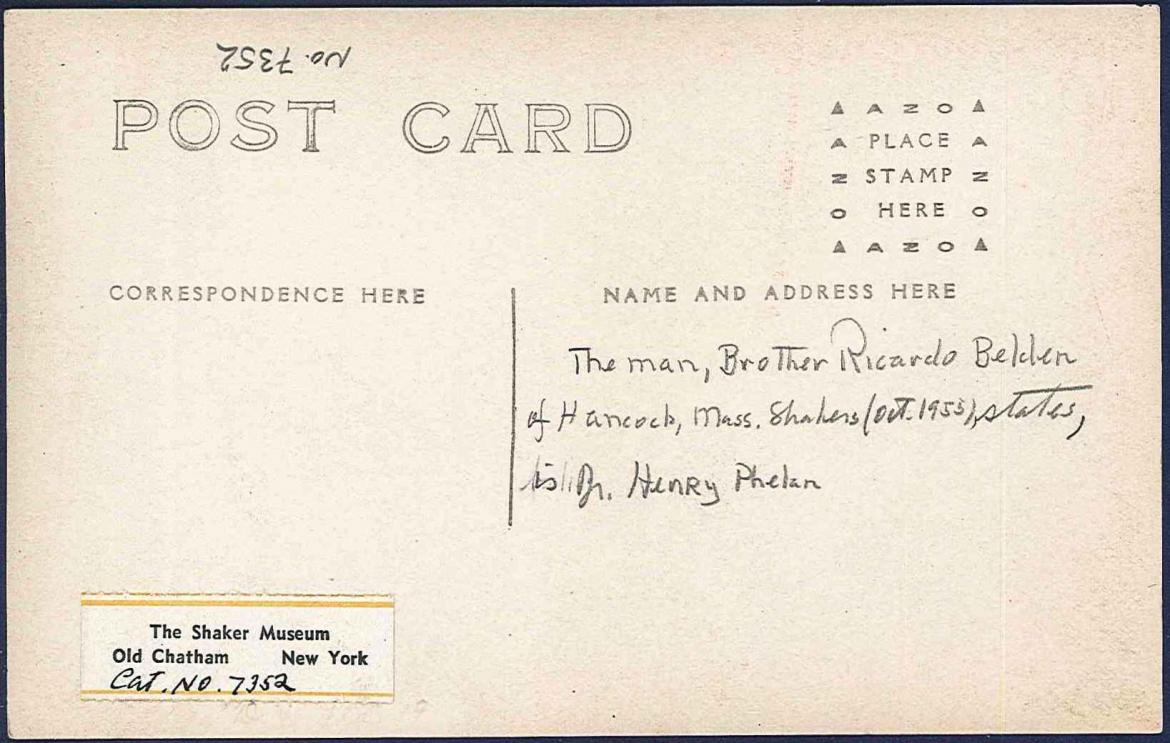 No. 7352
POST CARD
▲ A Z O ▲
A PLACE A
N STAMP N
O HERE O
▲ A Z O ▲
CORRESPONDENCE HERE
NAME AND ADDRESS HERE
The man, Brother Ricardo Belden
of Hancock, Mass. Shakers (Oct. 1955), states,
is Br. Henry Phelan
The Shaker Museum
Old Chatham New York
Cat. No. 7352